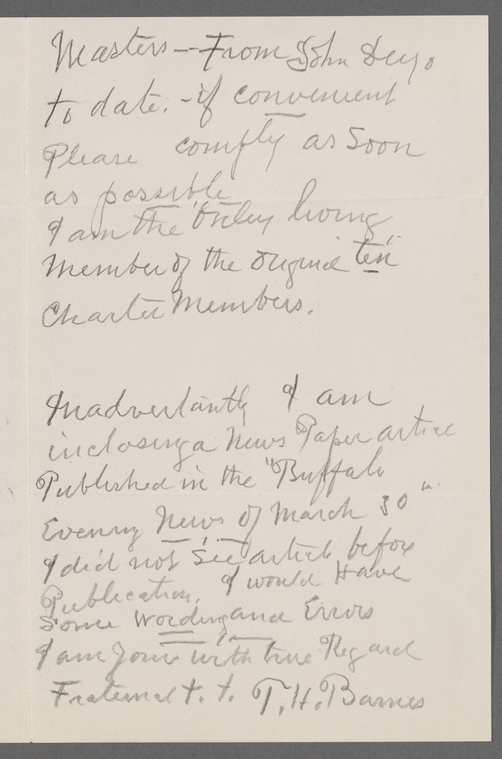 Masters - From John Deyo
to date. - if convenient
Please comply as soon
as possible
I am the only living
Member of the Original "ten"
Charter Members.
Inadvertantly I am
inclosing a News Paper article
Published in the "Buffalo
Evening News of March 30"
I did not see article before
Publication. I would Have
Some Wording and Errors
I am Yours with true Regard
Fraternal t. t. T. H. Barnes